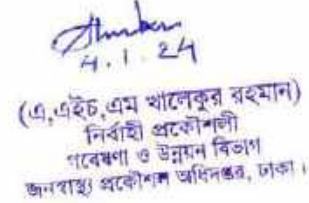 4.1.24
(এ,এইচ,এম খালেকুর রহমান)
নির্বাহী প্রকৌশলী
গবেষণা ও উন্নয়ন বিভাগ
জনস্বাস্থ্য প্রকৌশল অধিদপ্তর, ঢাকা।